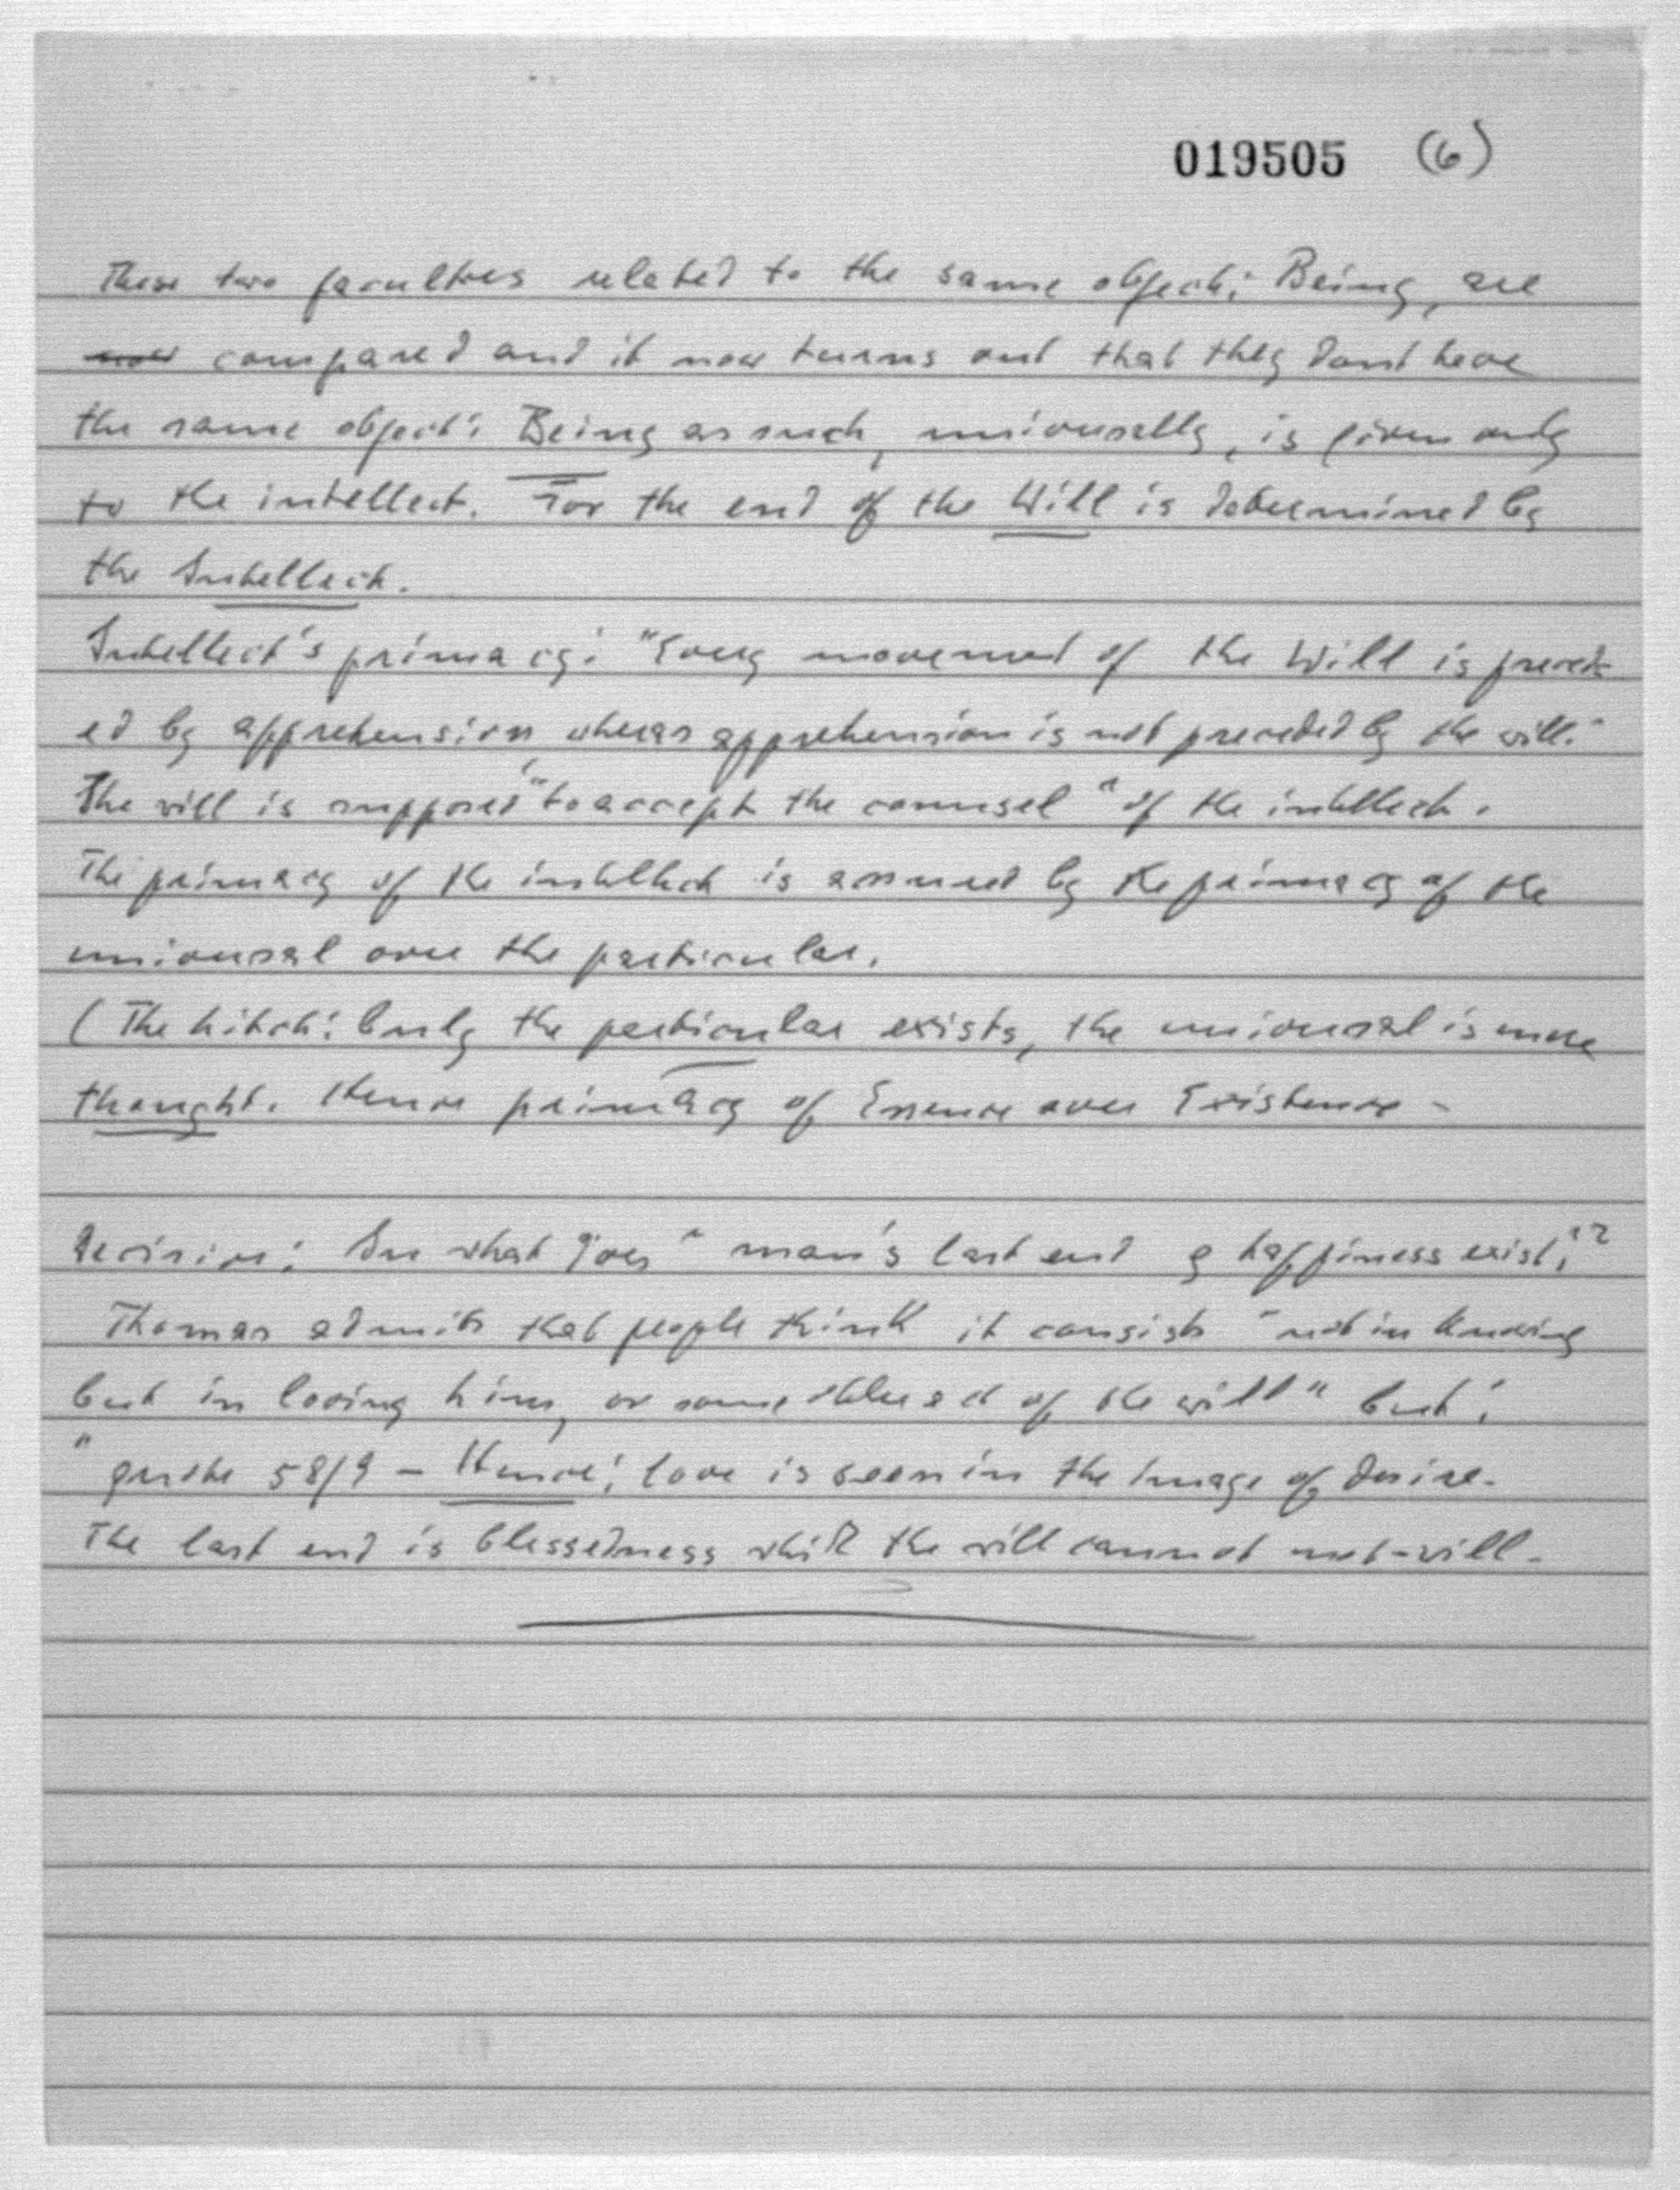 019505 (6)
These two faculties related to the same object: Being, are
compared and it now turns out that they dont have
the same object: Being as such, universally, is given only
to the intellect. For the end of the Will is determined by
the Intellect.
Intellect's primacy: "Every movement of the Will is preced-
ed by apprehension, wheras apprehension is not preceded by the will."
The will is supposed "to accept the counsel" of the intellect.
The primacy of the intellect is assured by the primacy of the
universal over the particular.
(The hitch: Only the particular exists, the universal is mere
thought. Hence primacy of Essence over Existence -
Decisive: In what does "man's last end & happiness exist"?
Thomas admits that people think it consists "not in knowing
but in loving him, or some other act of the will" but:
"quote 58/9 - Hence: love is seen in the image of desire.
The last end is blessedness which the will cannot not-will.